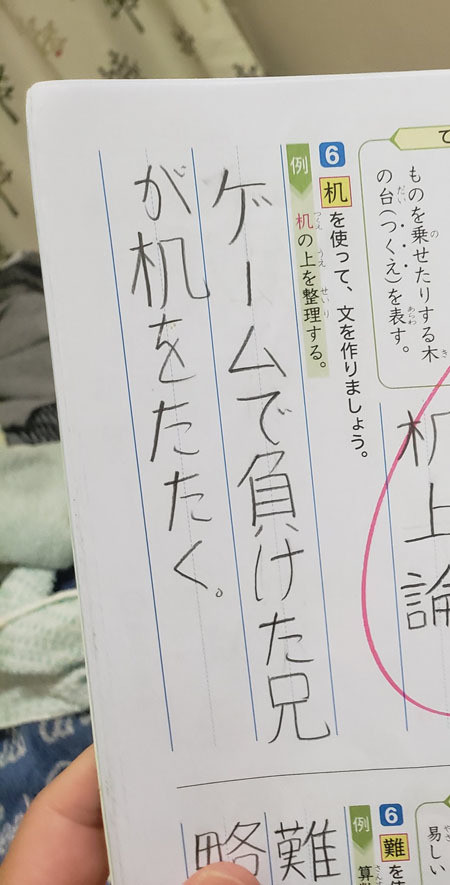 ものを乗せたりする木
の台(つくえ)を表す。
机上論
6 机を使って、文を作りましょう。
例 机の上を整理する。
ゲームで負けた兄
が机をたたく。
易しい
6 難を
例 算
難
略